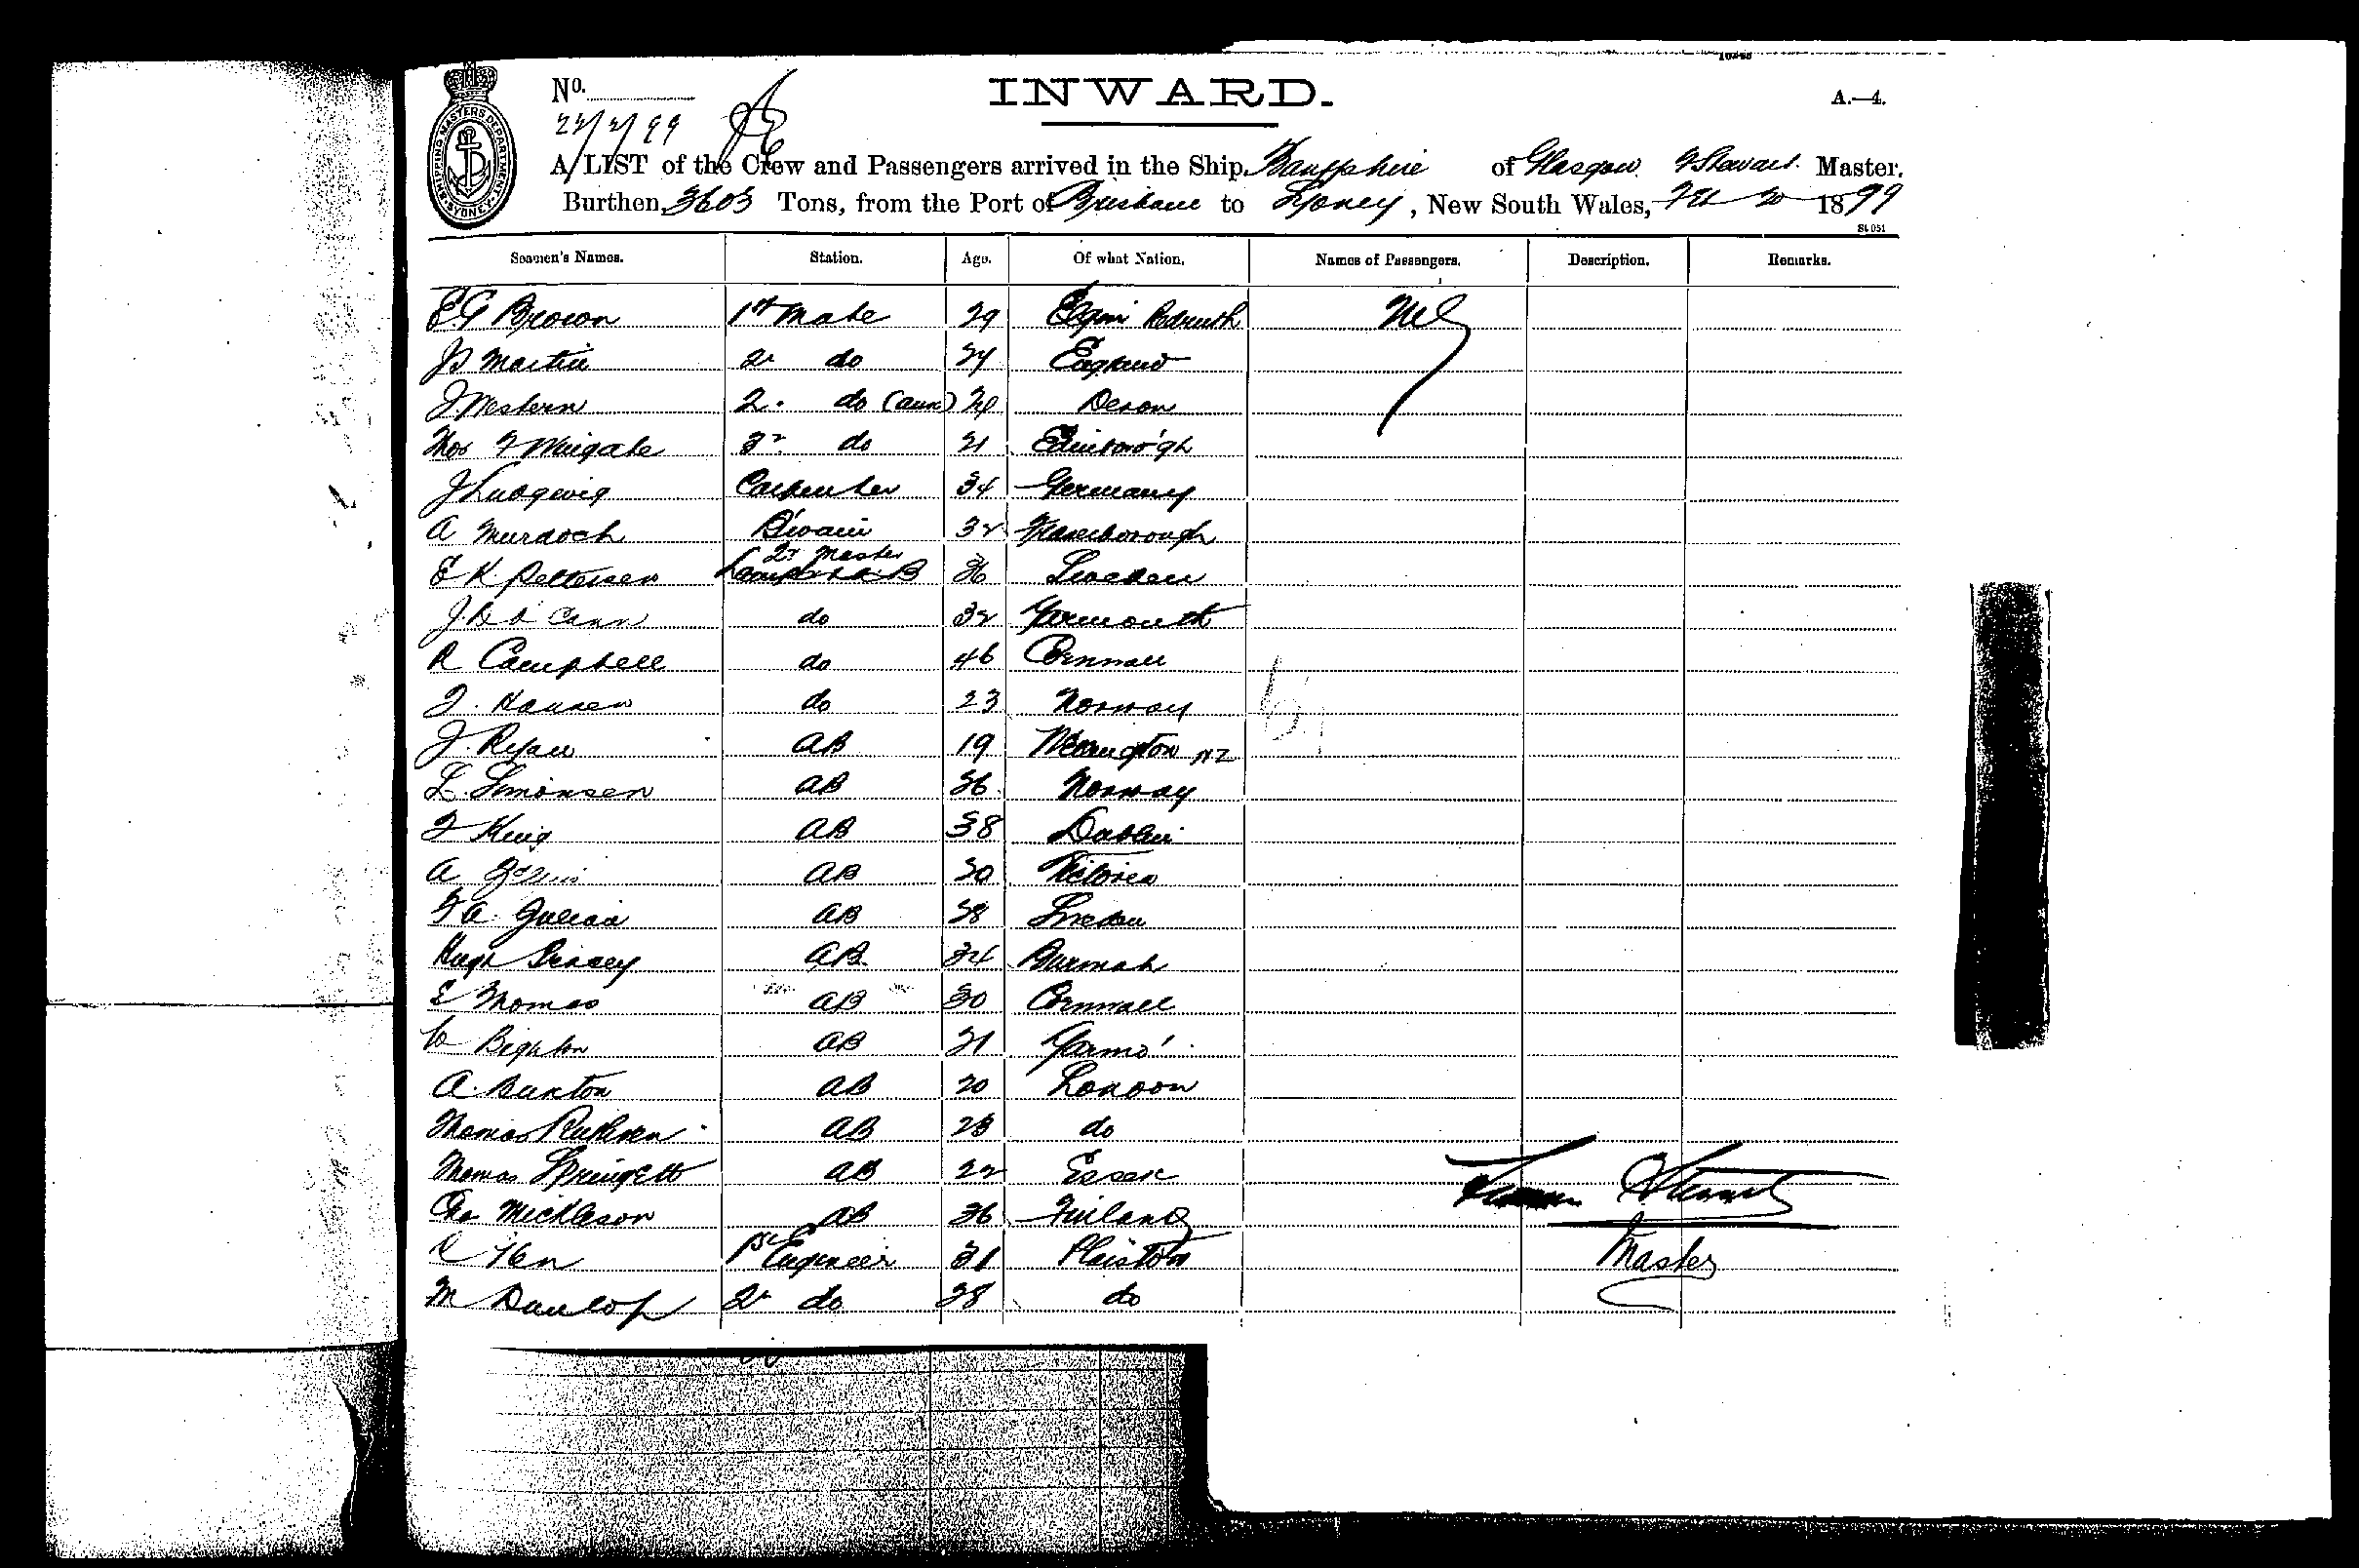 INWARD.
A.—4.
No.
22/2/99
SHIPPING MASTERS DEPARTMENT SYDNEY
A LIST of the Crew and Passengers arrived in the Ship Banffshire of Glasgow F Stewart Master,
Burthen 3603 Tons, from the Port of Brisbane to Sydney, New South Wales, Feb 20 1899
St 051
Seamen's Names. Station. Age. Of what Nation. Names of Passengers. Description. Remarks.
E G Brown 1st Mate 29 Redruth Nil
J S Martin 2d do England
J Western 2. do (aux) Devon
Thos F Wingate 3d do 21 Edinboro'gh
J Ludgwig Carpenter 34 Germany
A Murdoch B'swain 32
E K Pettersen Lamps & AB 36 Sweden
2r Master
J. Cann do 32 Yarmouth
R Campbell do 46 Cornwall
J. Hansen do 23 Norway
J. Ryan AB 19 Wellington NZ
L. Simonsen AB 36 Norway
J King AB 38 Dublin
A AB 30 Victoria
F A. Julian AB 38 Sweden
Hugh AB. 34 Burmah
E Thomas AB 30 Cornwall
W Bighton AB 21 Yarmo'
A. Buxton AB 20 London
Thomas Ruthven AB 23 do
Thomas Springett AB 22 Essex
Chs Mickleson AB 36 Finland
1st Engineer 31 Plaistow
M Dunlop 2d do 38 do
Stewart
Master